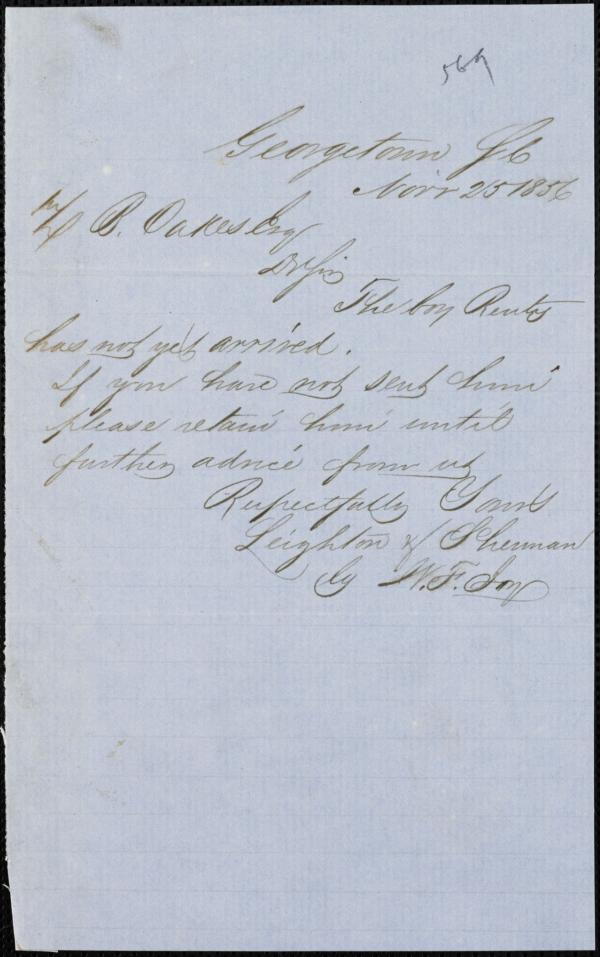 569
Georgetown S C
Novr 25 1856
Z B. Oakes Esq
Dr Sir
The boy
has not yet arrived.
If you have not sent him
please retain him until
further advice from us
Respectfully Yours
Leighton & Sherman
By W. F.